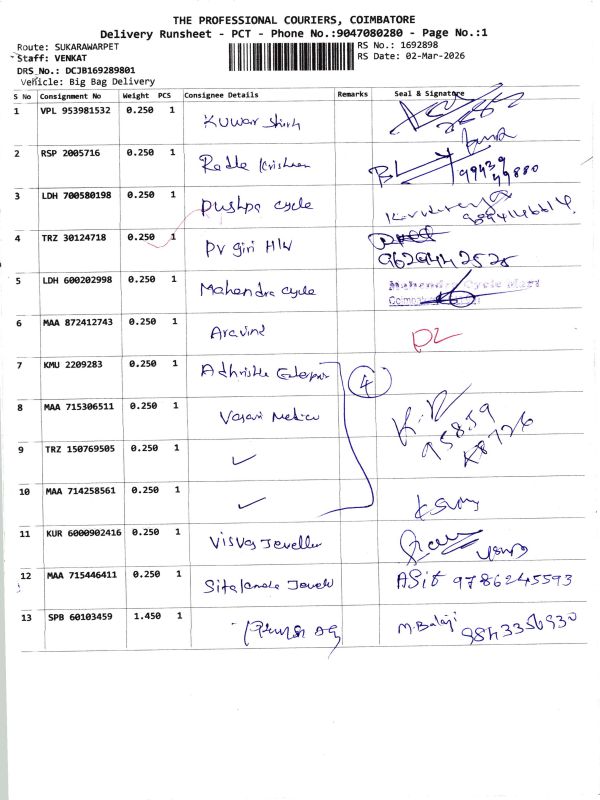 THE PROFESSIONAL COURIERS, COIMBATORE
Delivery Runsheet - PCT - Phone No.:9047080280 - Page No.:1
Route: SUKARAWARPET
Staff: VENKAT
DRS No.: DCJB169289801
Vehicle: Big Bag Delivery
RS No.: 1692898
RS Date: 02-Mar-2026
S No Consignment No Weight PCS Consignee Details Remarks Seal & Signature
1 VPL 953981532 0.250 1 Kuwar
2 RSP 2005716 0.250 1 Radhe Krishna 99439 49880
3 LDH 700580198 0.250 1 Pushpa cycle
4 TRZ 30124718 0.250 1 PV giri H/W 9629442525
5 LDH 600202998 0.250 1 Mahendra cycle Mahendra Cycle Mart
6 MAA 872412743 0.250 1 Aravind
7 KMU 2209283 0.250 1 4
8 MAA 715306511 0.250 1 Vasavi K.R 95859
9 TRZ 150769505 0.250 1 ✓
10 MAA 714258561 0.250 1 ✓
11 KUR 6000902416 0.250 1 Visvas Jeweller
12 MAA 715446411 0.250 1 ASit 9786245593
13 SPB 60103459 1.450 1 M.Balaji 9843356930